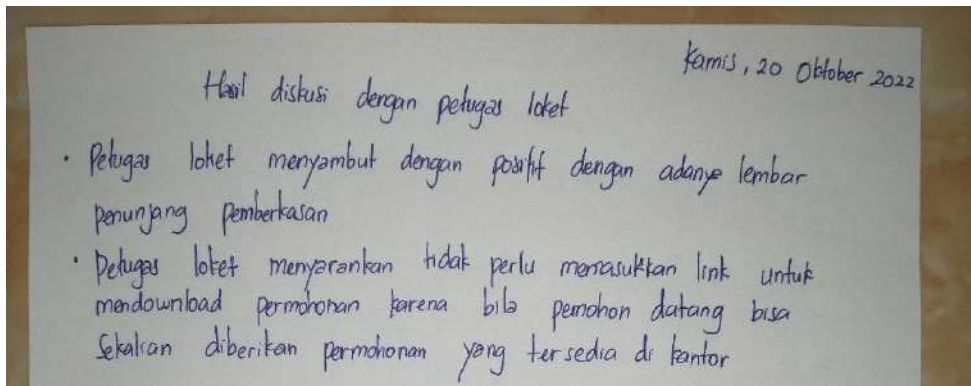 Kamis, 20 Oktober 2022
Hasil diskusi dengan petugas loket
• Petugas loket menyambut dengan positif dengan adanya lembar
penunjang pemberkasan
• Petugas loket menyarankan tidak perlu memasukkan link untuk
mendownload permohonan karena bila pemohon datang bisa
sekalian diberikan permohonan yang tersedia di kantor